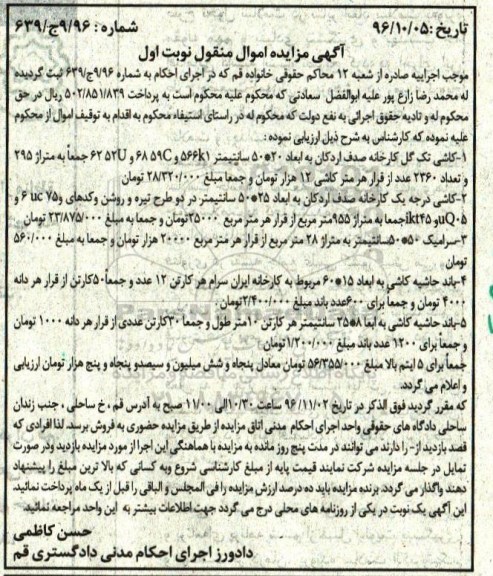 تاریخ :۹۶/۱۰/۰۵ شماره : ۹/۹۶ج/۶۳۹
آگهی مزایده اموال منقول نوبت اول
موجب اجراییه صادره از شعبه ۱۲ محاکم حقوقی خانواده قم که در اجرای احکام به شماره ۹/۹۶ج/۶۳۹ ثبت گردیده
له محمد رضا زارع پور علیه ابوالفضل سعادتی که محکوم علیه محکوم است به پرداخت ۵۰۲/۸۵۱/۸۳۹ ریال در حق
محکوم له و تادیه حقوق اجرائی به نفع دولت که محکوم له در راستای استیفاء محکوم به اقدام به توقیف اموال از محکوم
علیه نموده که کارشناس به شرح ذیل ارزیابی نموده :
۱-کاشی تک گل کارخانه صدف اردکان به ابعاد ۲۰*۵۰ سانتیمتر ۵۶۶k۱ و ۶۸ ۵۹C و ۶۲ ۵۲U جمعاً به متراژ ۲۹۵
و تعداد ۲۳۶۰ عدد از قرار هر متر کاشی ۱۲ هزار تومان و جمعا مبلغ ۲۸/۳۲۰/۰۰۰ تومان
۲-کاشی درجه یک کارخانه صدف اردکان به ابعاد ۲۵*۵۰ سانتیمتر در دو طرح تیره و روشن وکدهای و۷۵ uc ۶ و
uQ۰۵و ikt۴۵جمعا به متراژ ۹۵۵متر مربع از قرار هر متر مربع ۲۵۰۰۰تومان و جمعا به مبلغ ۲۳/۸۷۵/۰۰۰ تومان
۳-سرامیک ۵۰*۵۰سانتیمتر به متراژ ۲۸ متر مربع از قرار هر متر مربع ۲۰۰۰۰ هزار تومان و جمعا به مبلغ ۵۶۰/۰۰۰
تومان
۴-باند حاشیه کاشی به ابعاد ۱۵*۶۰ مربوط به کارخانه ایران سرام هر کارتن ۱۲ عدد و جمعاً۵۰کارتن از قرار هر دانه
۴۰۰۰ تومان و جمعاً برای ۶۰۰عدد باند مبلغ ۲/۴۰۰/۰۰۰تومان
۵-باند حاشیه کاشی به ابعا ۸*۲۵ سانتیمتر هر کارتن ۱۰متر طول و جمعاً ۳۰کارتن عددی از قرار هر دانه ۱۰۰۰ تومان
و جمعاً برای ۱۲۰۰ عدد باند مبلغ ۱/۲۰۰/۰۰۰ تومان
جمعاً برای ۵ ایتم بالا مبلغ ۵۶/۳۵۵/۰۰۰ تومان معادل پنجاه و شش میلیون و سیصدو پنجاه و پنج هزار تومان ارزیابی
و اعلام می گردد.
که مقرر گردید فوق الذکر در تاریخ ۹۶/۱۱/۰۲ ساعت ۱۰/۳۰الی ۱۱/۰۰ صبح به آدرس قم ، خ ساحلی ، جنب زندان
ساحلی دادگاه های حقوقی واحد اجرای احکام مدنی اتاق مزایده از طریق مزایده حضوری به فروش برسد. لذا افرادی که
قصد بازدید از- را دارند می توانند در مدت پنج روز مانده به مزایده با هماهنگی این اجرا از مورد مزایده بازدید ودر صورت
تمایل در جلسه مزایده شرکت نمایند قیمت پایه از مبلغ کارشناسی شروع وبه کسانی که بالا ترین مبلغ را پیشنهاد
دهند واگذار می گردد. برنده مزایده باید ده درصد ارزش مزایده را فی المجلس و الباقی را قبل از یک ماه پرداخت نمائید.
این آگهی یک نوبت در یکی از روزنامه های محلی درج می گردد جهت اطلاعات بیشتر به این واحد مراجعه نمائید.
حسن کاظمی
دادورز اجرای احکام مدنی دادگستری قم